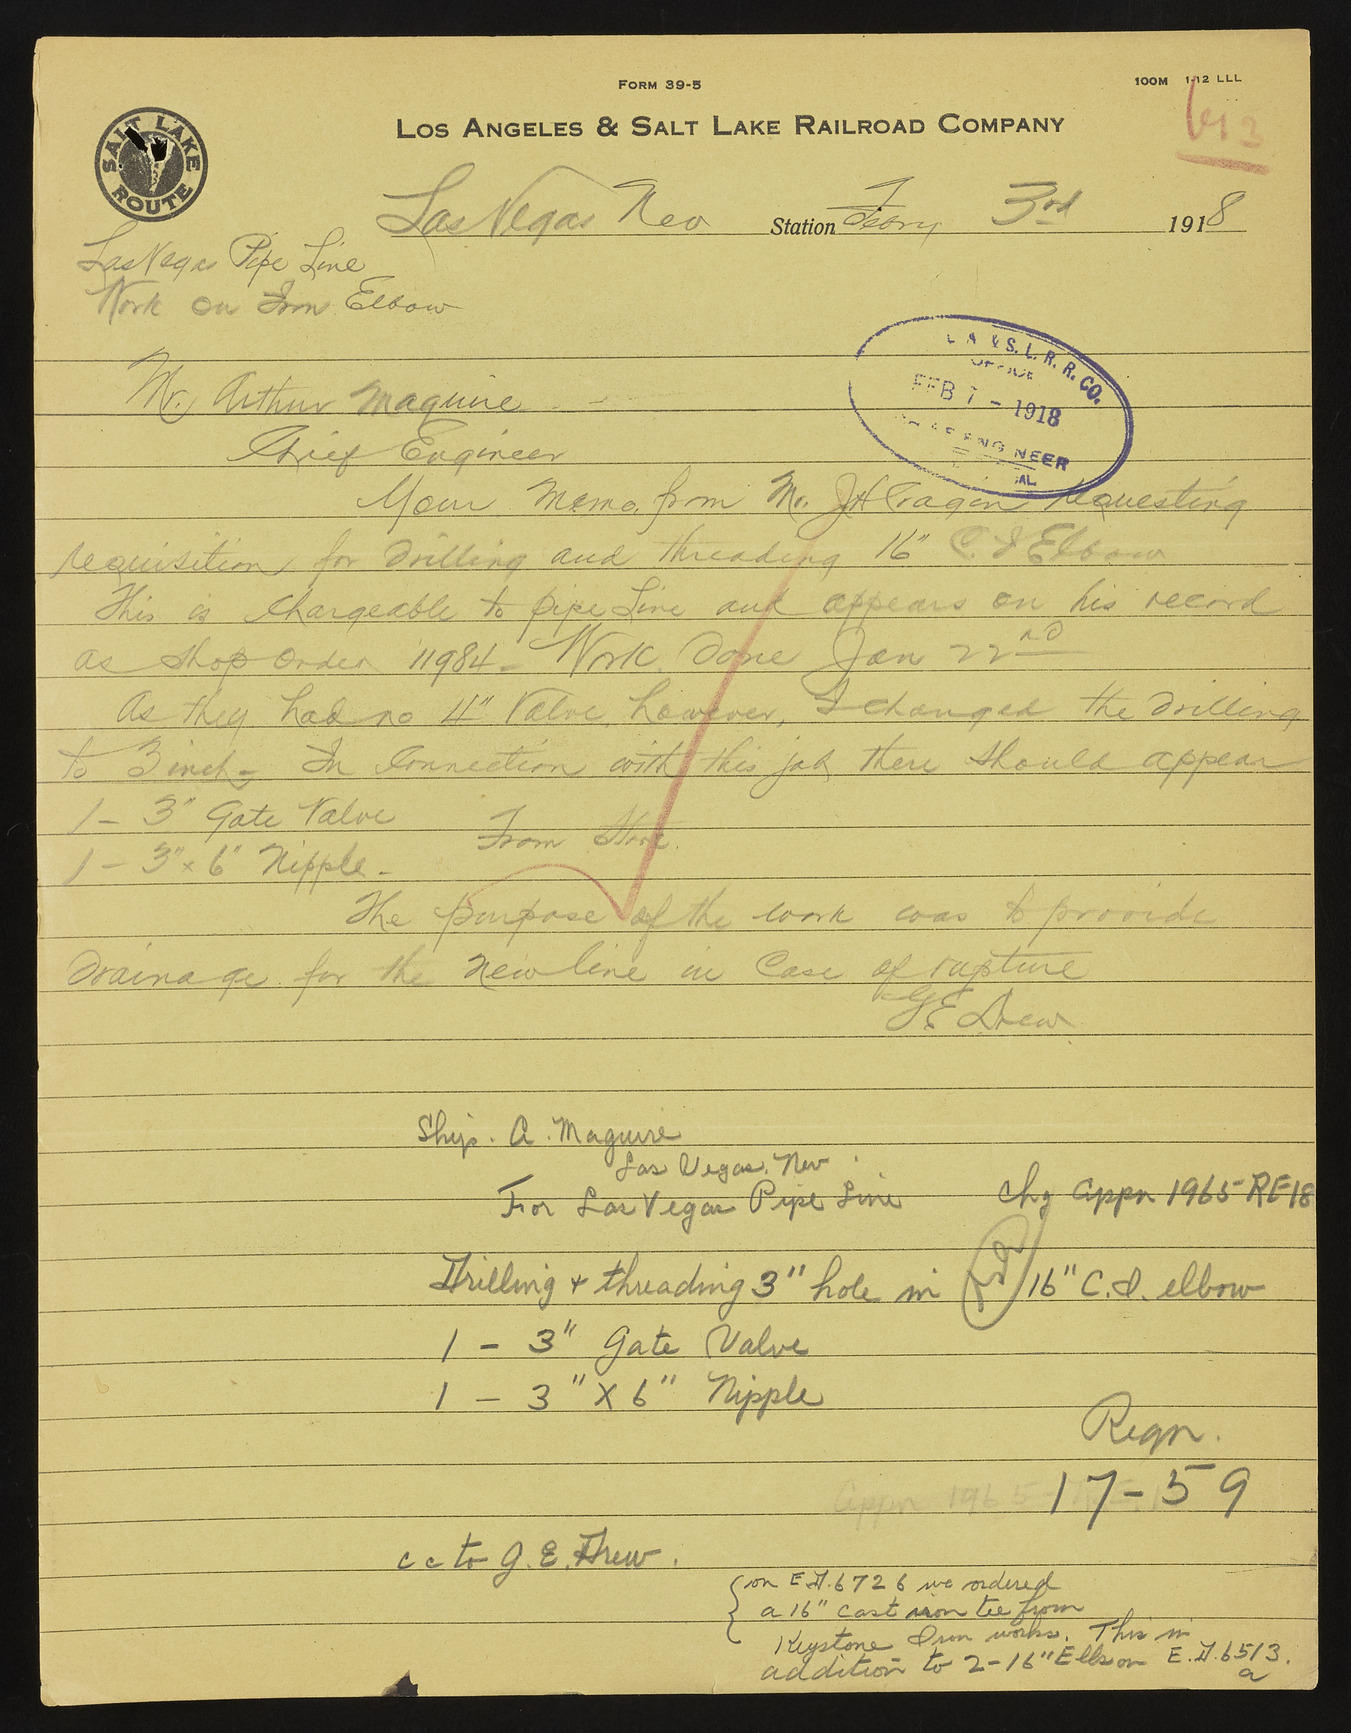 FORM 39-5
100M 1-12 LLL
LOS ANGELES & SALT LAKE RAILROAD COMPANY
SALT LAKE
ROUTE
Las Vegas Nev Station Febry 3rd 1918
Las Vegas Pipe Line
Work on Iron Elbow
L A & S. L. R. R. CO.
FEB 7 - 1918
ENGINEER
Mr. Arthur Maguire
Chief Engineer
Your Memo. from Mr. JH requesting
requisition for Drilling and threading 16" C. I Elbow
This is Chargeable to pipe Line and appears on his record
as Shop Order 11984 - Work Done Jan 22nd
As they had no 4" Valve, however, I changed the Drilling
to 3 inch - In Connection with this job there should appear
1 - 3" Gate Valve
From Store.
1 - 3" x 6" Nipple -
The purpose of the work was to provide
Drainage for the New line in Case of rupture
GE Drew
Ship. A. Maguire
Las Vegas, Nev.
For Las Vegas Pipe Line Chg Appn 1965-RE18
Drilling & threading 3" hole in 16" C. I. elbow
1 - 3" Gate Valve
1 - 3" X 6" Nipple
Reqn.
Appn 1965
17-59
cc to G. E. Drew.
on E.D. 6726 we ordered
a 16" cast iron tee from
Keystone Iron works. This in
addition to 2-16" Ells on E.D. 6513.
a